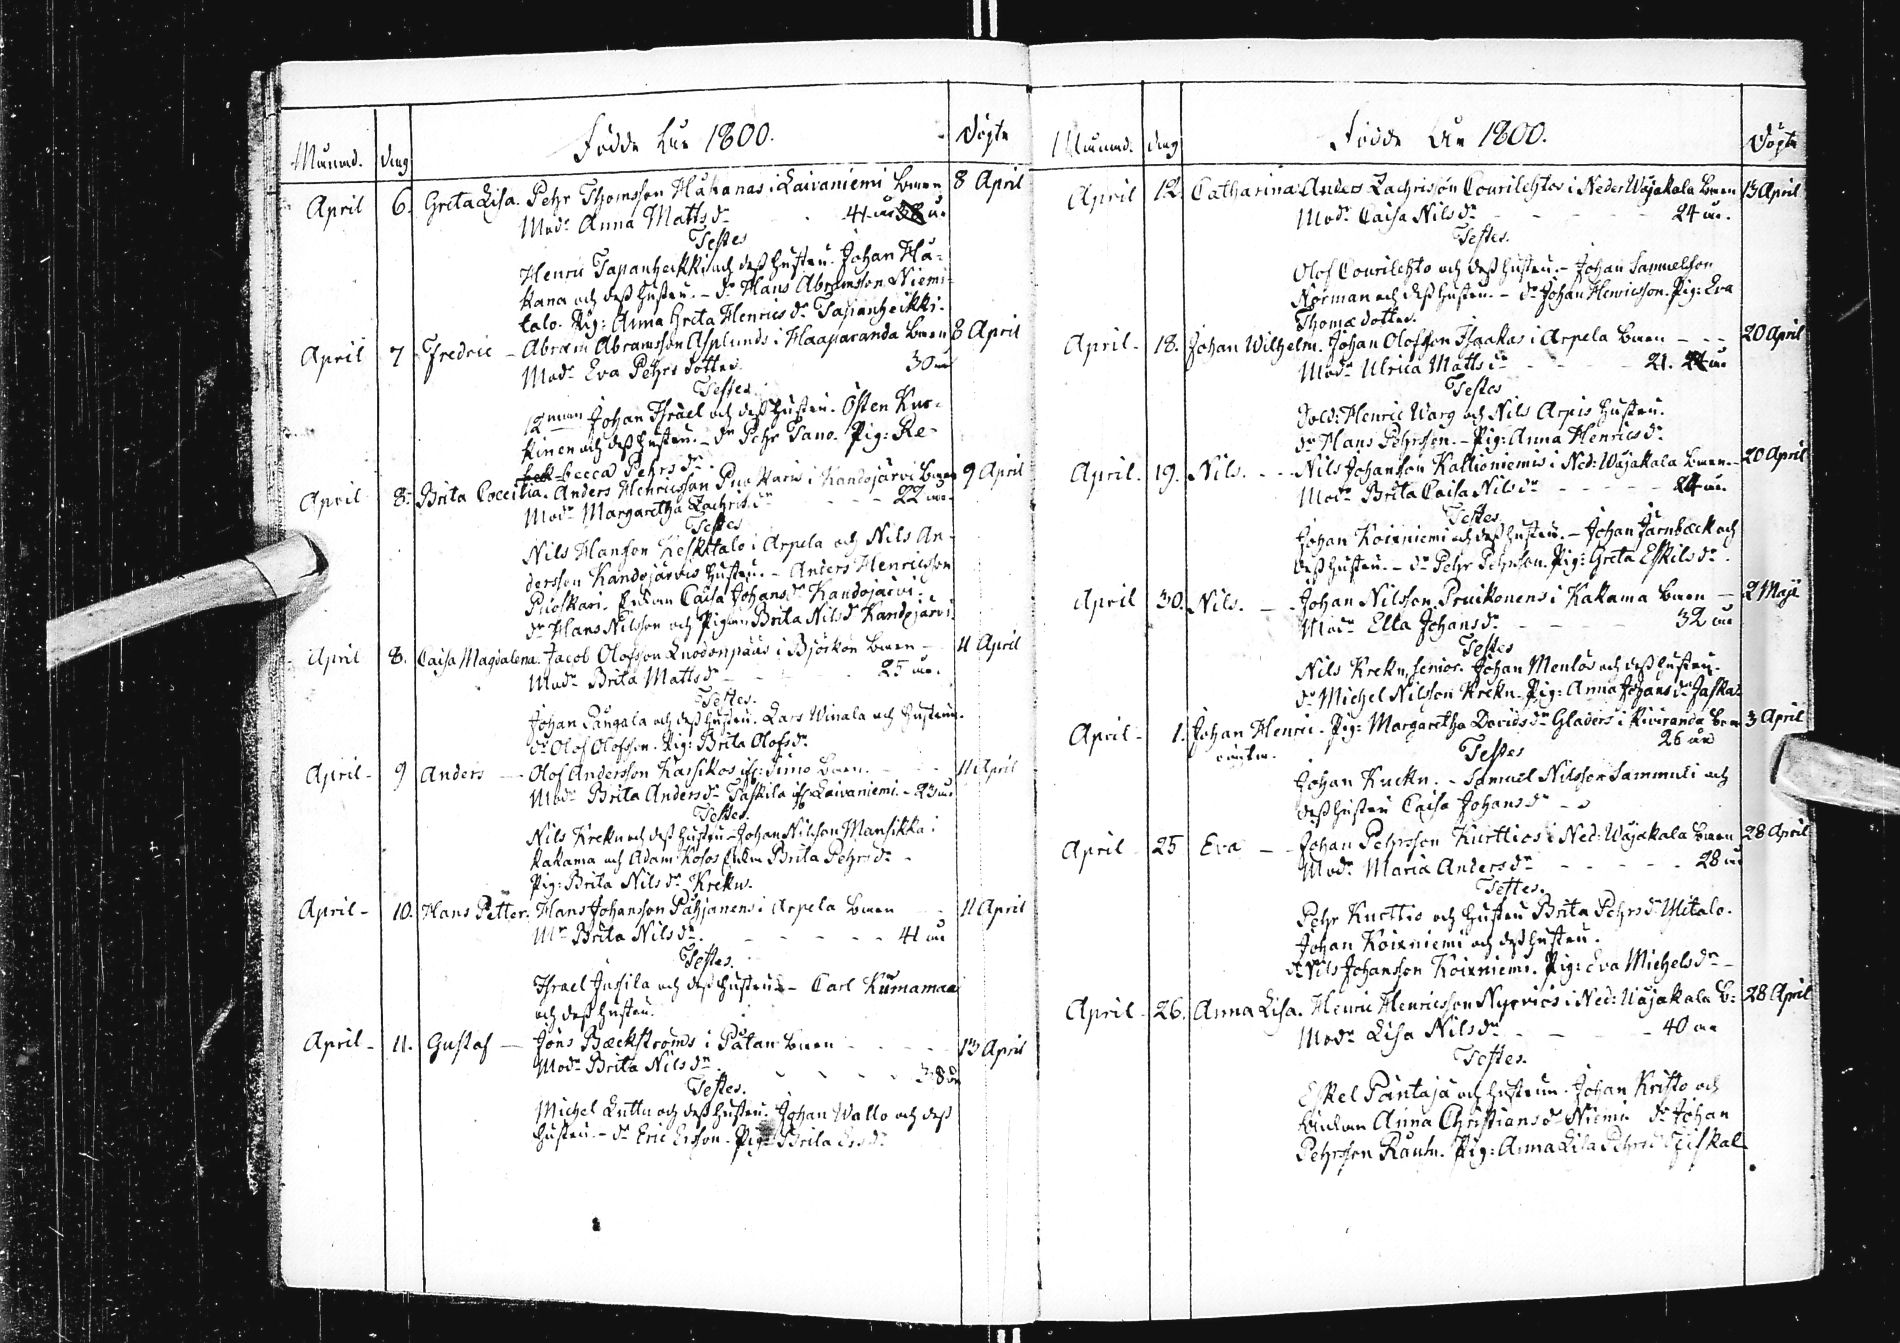 Månad. dag Födde åhr 1800. Döpte
April 6. Greta Lisa. Pehr Thomsson Häkanas i Laivaniemi barn 8 April
Modr Anna Mattsdr 41 år
Testes
Henric Tapanheikki och dess hustru. Johan Hä-
kana och dess hustru. - dr Hans Abramsson Niemi-
talo. Pig: Anna Greta Henricsdr Tapanheikki.
April 7 Fredric - Abram Abramsson Asplunds i Haaparanda barn 8 April
Modr Eva Pehrsdotter. 30 år
Testes
12 man Johan Israel och dess hustru. Östen Kur-
kinen och dess hustru. - dr Pehr Tano. Pig: Re-
becca Pehrsdr.
April 8. Brita Coecilia. Anders Henricsson Puoskaris i Kandojärvi barn 9 April
Modr Margaretha Zachrisdr 22 år
Testes
Nils Hansson Keskitalo i Arpela och Nils An-
dersson Kandojärvis hustru. - Anders Henricsson
Puoskari. Enkan Caisa Johansdr Kandojärvi.
dr Hans Nilsson och Pigan Brita Nilsdr Kandojärvi.
April 8. Caisa Magdalena. Jacob Olofsson Knodonpääs i Björkön barn - 11 April
Modr Brita Mattsdr 25 år.
Testes.
Johan Pangala och dess hustru. Lars Winala och hustrun.
dr Olof Olofsson. Pig: Brita Olofsdr
April - 9 Anders - Olof Andersson Kassikos if: Simo barn. 11 April
Modr Brita Andersdr Taskila if: Laivaniemi. - 23 år
Testes.
Nils Krekn och dess hustru - Johan Nilsson Mansikka i
Kakama och Adam Kosos Enka Brita Pehrsdr -
Pig: Brita Nilsdr Krekn.
April - 10. Hans Petter. Hans Johansson Pahjanens i Arpela barn 11 April
Mr Brita Nilsdr. 41 år
Testes.
Israel Jussila och dess hustru - Carl Kurnamaa
och dess hustru.
April - 11. Gustaf - Jöns Bæckströms i Pätan barn 13 April
Modr Brita Nilsdr 38 år
Testes.
Michel Luttu och dess hustru. Johan Wallo och dess
hustru. - dr Eric Ersson. Pig: Brita Ersdr
Månad. dag Födde åhr 1800. Döpte
April 12. Catharina Anders Zachrisson Courilehtos i Neder Wojakala barn 13 April
Modr Caisa Nilsdr 24 år.
Testes.
Olof Courilehto och dess hustru. - Johan Samuelsson
Norman och dess hustru. - dr Johan Henricsson. Pig: Eva
Thomædotter.
April - 18. Johan Wilhelm. Johan Olofsson Isaakas i Arpela barn 20 April
Modr Ulrica Mattsdr 21. år
Testes
Sold: Henric Warg och Nils Arpis hustru.
dr Hans Pehrsson. - Pig: Anna Henricsdr
April. 19. Nils. - Nils Johansson Kallioniemis i Ned: Wojakala barn - 20 April
Modr Brita Caisa Nilsdr 24 år.
Testes
Johan Koivuniemi och dess hustru. - Johan Jernbæck och
dess hustru. - dr Pehr Pehrsson. Pig: Greta Eskilsdr.
April 30. Nils. - Johan Nilsson Pruikonens i Kakama barn - 2 Maji
Modr Ella Johansdr 32 år
Testes
Nils Krekn, senior. Johan Menlös och dess hustru.
dr Michel Nilsson Krekn. Pig: Anna Johansdr Jaska.
April - 1. Johan Henric. Pig: Margaretha Davidsdr Gladers i Kiviranda barn 3 April
oägta. 26 år
Testes
Johan Kuckn. - Samuel Nilsson Sammuli och
dess hustru Caisa Johansdr
April - 25 Eva - Johan Pehrsson Kurttios i Ned: Wojakala barn 28 April
Modr Maria Andersdr 28 år
Testes.
Pehr Kurttio och hustru Brita Pehrsdr Ylitalo.
Johan Koivuniemi och dess hustru.
dr Nils Johansson Koivuniemi. Pig: Eva Michelsdr -
April - 26. Anna Lisa. Henric Henricsson Nyqvists i Ned: Wojakala b: 28 April
Modr Lisa Nilsdr 40 år
Testes.
Eskel Pantaja och hustrun. Johan Kristo och
Enkan Anna Christiansdr Niemi. dr Johan
Pehrsson Rautu. Pig: Anna Lisa Pehrsdr